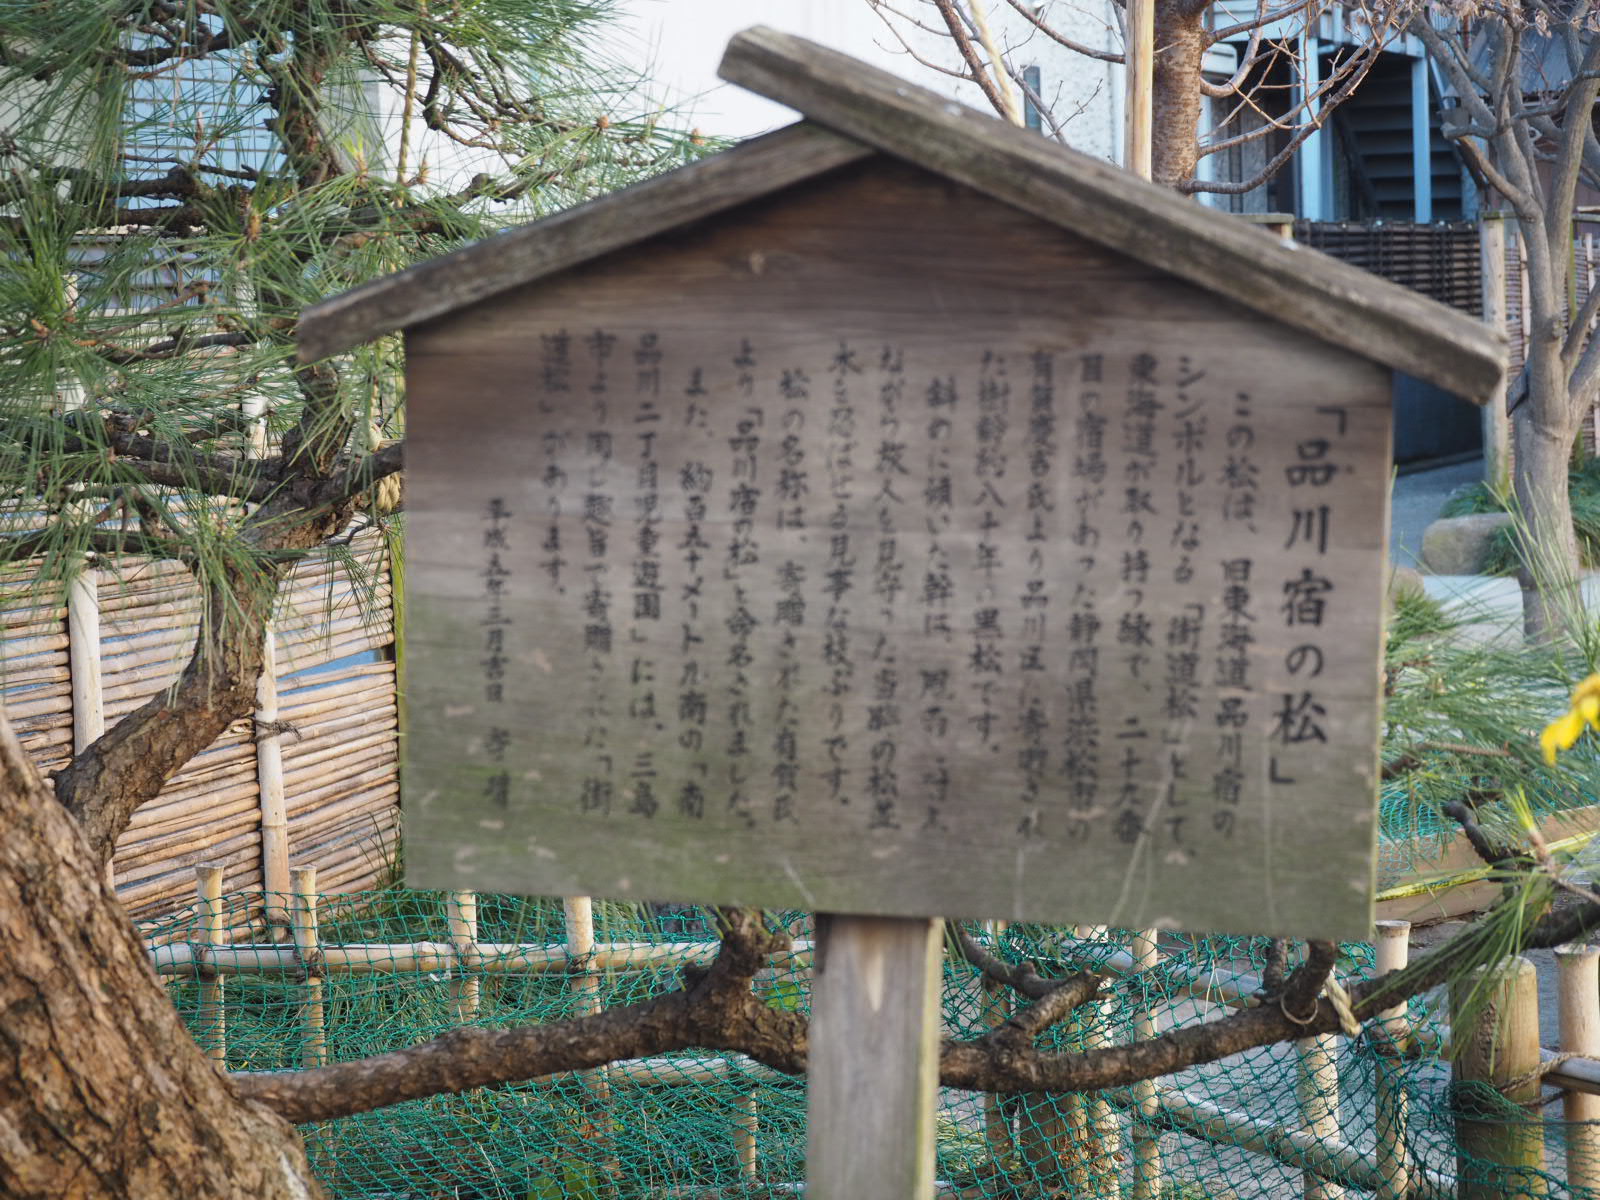 「品川宿の松」
この松は、旧東海道品川宿の
シンボルとなる「街道松」として、
東海道が取り持つ縁で、二十九番
目の宿場があった静岡県浜松市の
有賀 氏より品川区に寄贈され
た樹齢約八十年の黒松です。
斜めに傾いた幹は、風雨 耐え
ながら旅人を見守った当時の松並
木を思ばせる見事な枝ぶりです。
松の名称は、寄贈された有賀氏
より「品川宿の松」と命名されました。
また、約百五十メートル南の「南
品川二丁目児童遊園」には、三島
市より同じ趣旨で寄贈された「街
道松」があります。
平成五年三月吉日